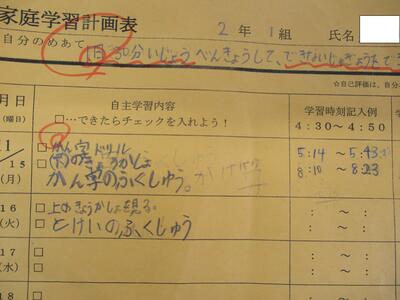 家庭学習計画表
2年1組 氏名
自分のめあて
1日30分いじょうべんきょうして、できないじょきょうたてき
☆自己評価は、自分
月日
(曜日)
自主学習内容
□…できたらチェックを入れよう!
学習時刻記入例
4:30~4:50
□かん字ドリル
5:14~5:43
15
8:10~8:23
(月)
かん字のふくしゅう。
16
□上のきょうかしょを観る。
: ~ :
(火)
□とけいのふくしゅう
: ~ :
17
□
: ~ :
(水)
□
: ~ :
18
□
: ~ :